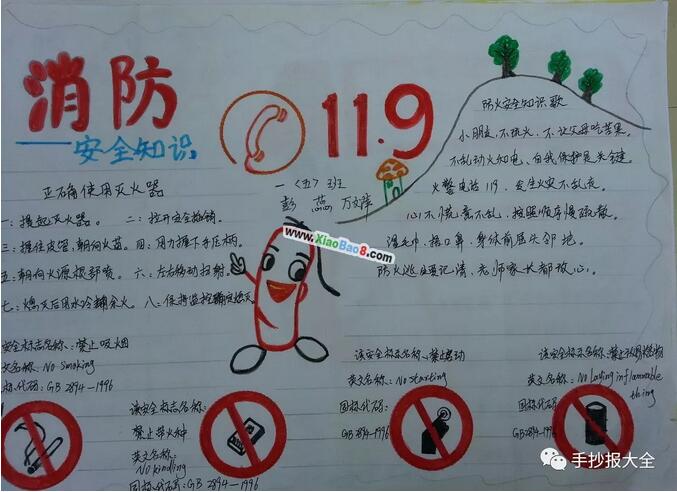 消防
——安全知识
119
正确使用灭火器
一：提起灭火器。 二：拉开安全插销。
三：握住皮管，朝向火苗。四：用力握下手压柄。
五：朝向火源根部喷。 六：左右移动扫射。
七：熄灭后用水冷
一〈五〉班
彭 蕊 万文萍
www.XiaoBao8.com
防火安全知识歌
小朋友，不玩火，不让父母吃苦果。
不乱动火和电，自我保护是关键。
火警电话119，发生火灾不乱大。
心不慌意不乱，按照顺序慢疏散。
湿毛巾，捂口鼻，身伏前屈头邻地。
防火逃生要记清，老师家长都放心。
安全标志名称：禁止吸烟
文名称：No smoking
标代码：GB 2894-1996
该安全标志名称：
禁止带火种
英文名称：
No kindling
国标代码：GB 2894-1996
该安全标志名称：禁止启动
英文名称：No starting
国标代码：
GB 2894-1996
该安全标志名称：禁止放易燃物
英文名称：No laying inflammable
thing
国标代码：
GB 2894-1996
手抄报大全